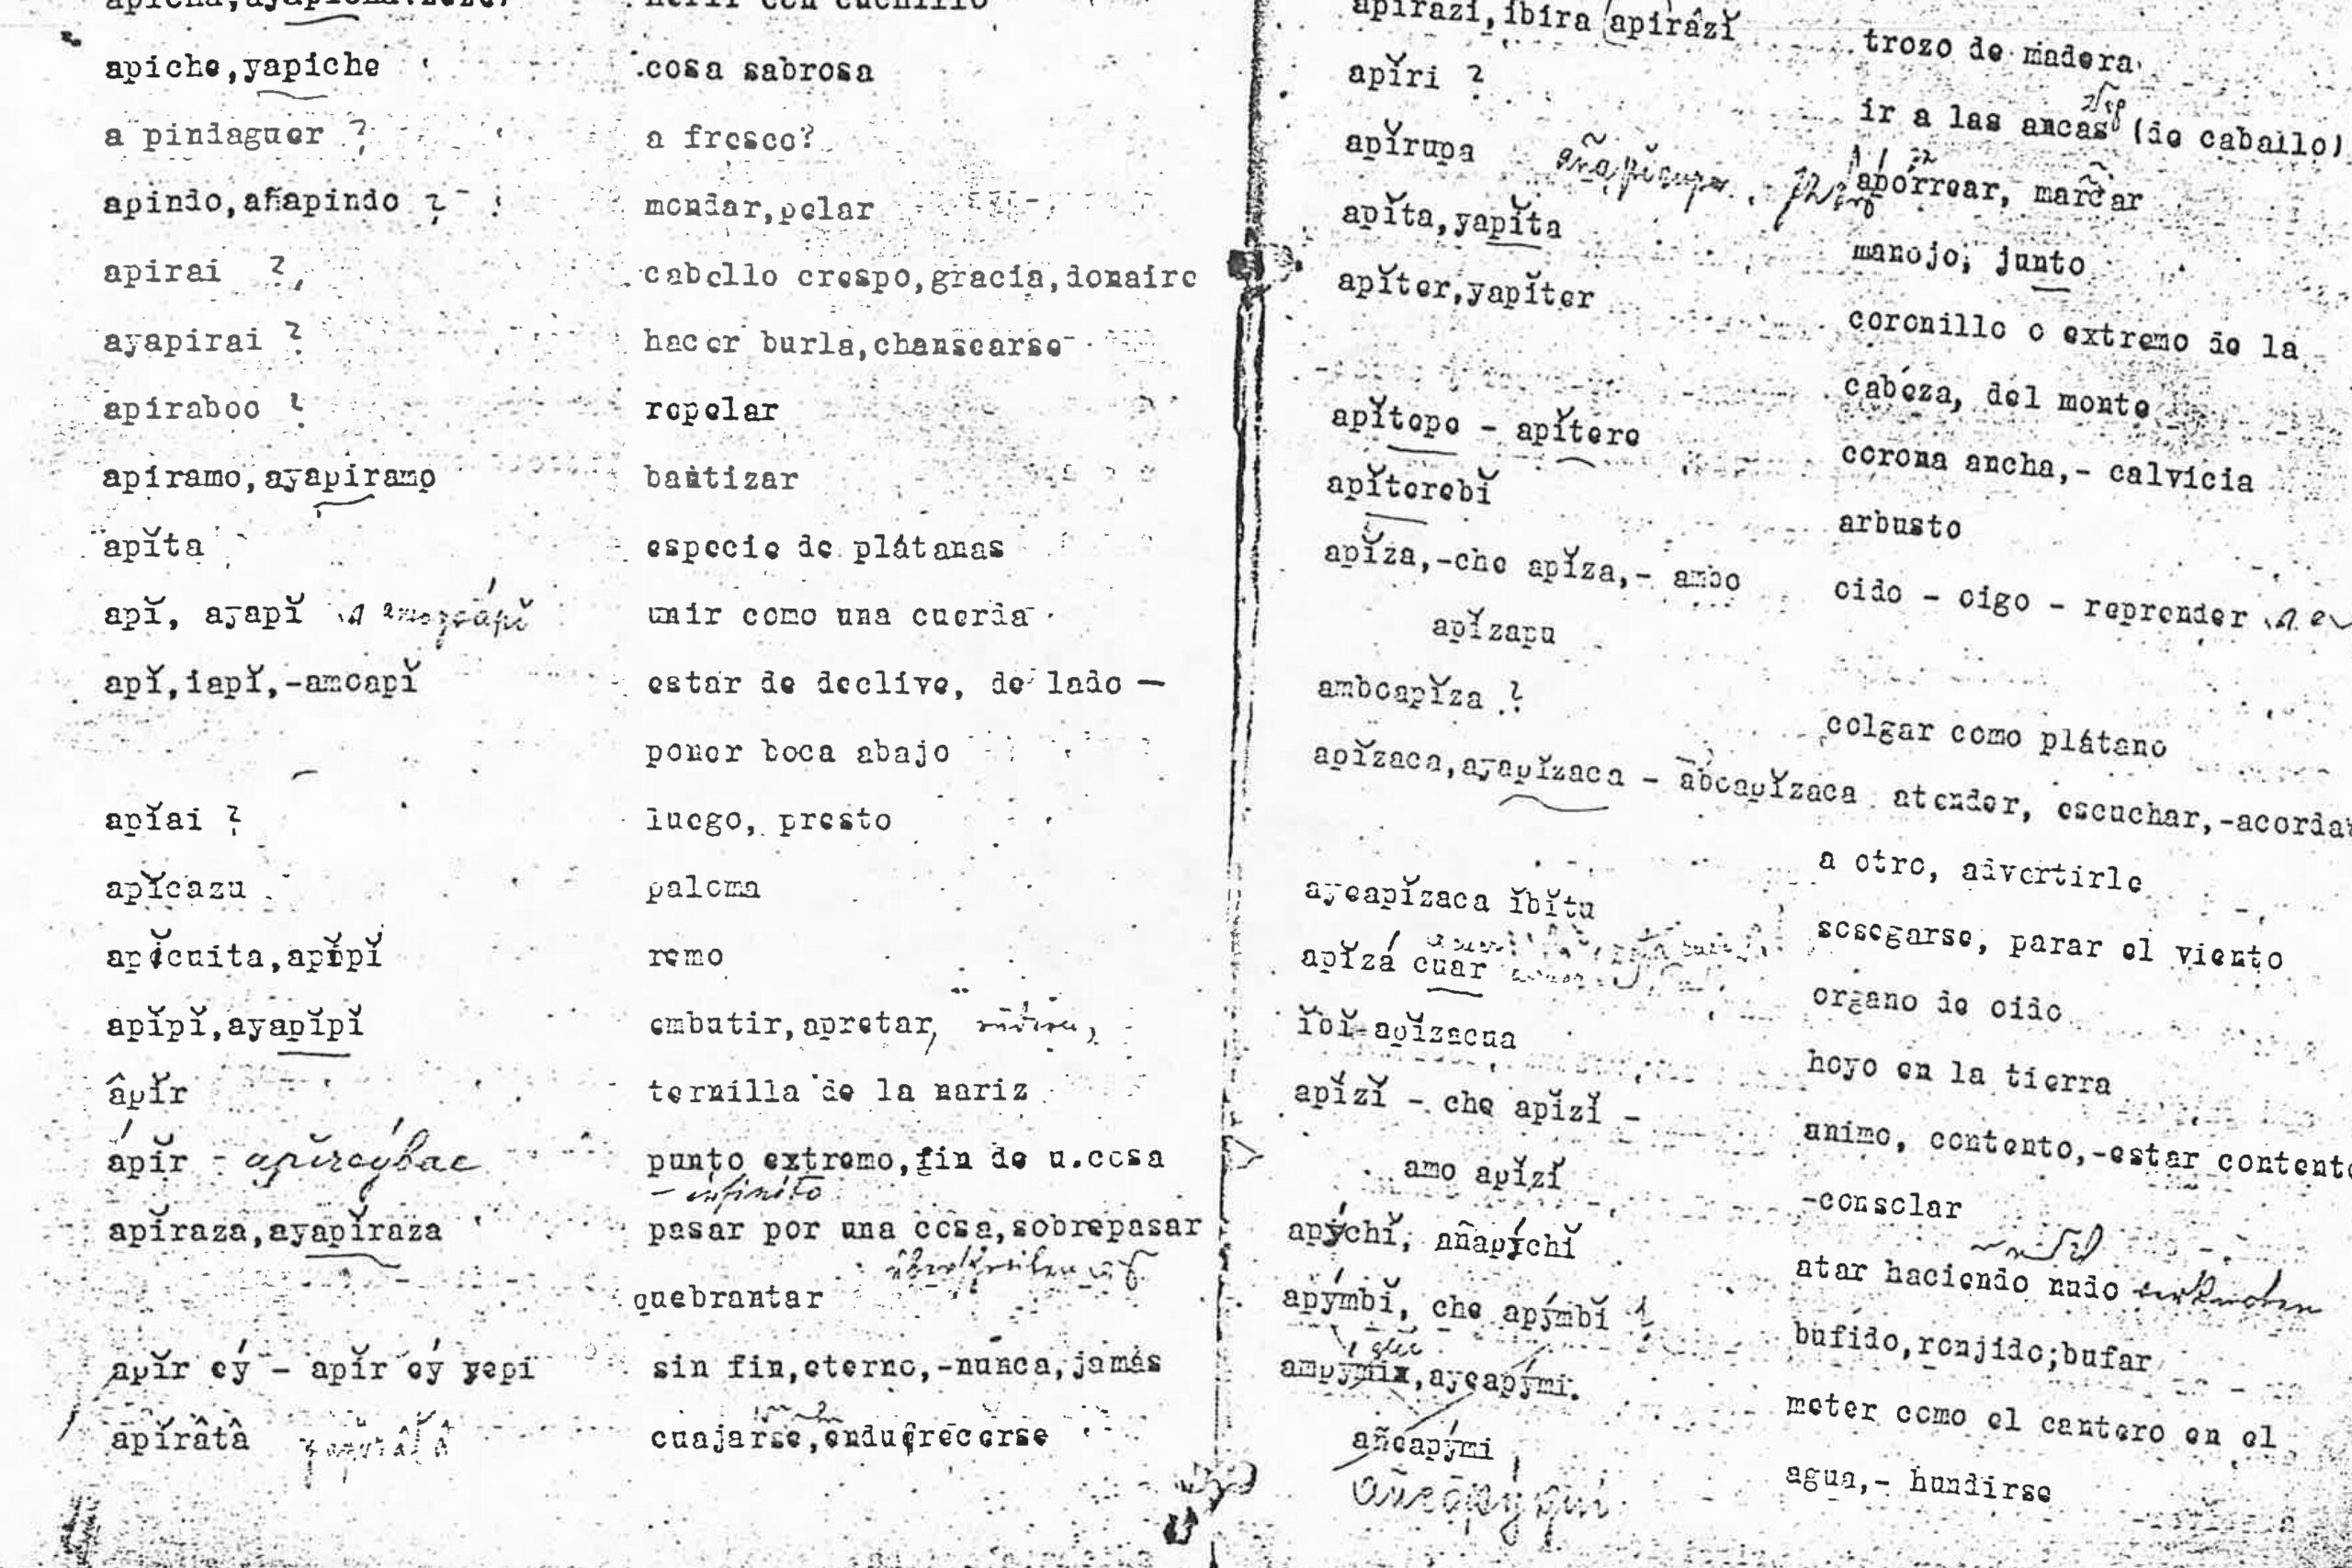 apiche, yapiche cosa sabrosa
a pindaguer ? a fresco?
apindo, añapindo ? mondar, pelar
apirai ? cabello crespo, gracia, donaire
ayapirai ? hacer burla, chansearse
apiraboo ? repelar
apiramo, ayapiramo bautizar
apĭta especie de plátanas
apĭ, ayapĭ unir como una cuerda
apĭ, iapĭ, -amoapĭ estar de declive, de lado —
poner boca abajo
apĭai ? luego, presto
apĭcazu paloma
apĭcuita, apĭpĭ remo
apĭpĭ, ayapĭpĭ embutir, apretar,
âpĭr ternilla de la nariz
ápĭr - punto extremo, fin de u.cosa
- infinito
apĭraza, ayapĭraza pasar por una cosa, sobrepasar
quebrantar
apĭr eý - apĭr eý yepi sin fin, eterno, -nunca, jamás
apĭrâtâ cuajarse, endurecerse
apĭrazĭ, ibira apĭrâzĭ trozo de madera
apĭri ? ir a las ancas (de caballo)
apĭrupa aporrear, marcar
apĭta, yapĭta manojo, junto
apĭter, yapĭter coronillo o extremo de la
cabeza, del monte
apĭtepe - apĭtere corona ancha, - calvicia
apĭterebĭ arbusto
apĭza, -che apĭza, - ambo oido - oigo - reprender
apĭzapu
amboapĭza ? colgar como plátano
apĭzaca, ayapĭzaca - aboapĭzaca atender, escuchar, -acordar
a otro, advertirle
ayeapĭzaca ĭbĭtu sosegarse, parar el viento
apĭzá cuar organo de oido
ĭbĭ-apĭzacua hoyo en la tierra
apĭzĭ - che apĭzĭ - animo, contento, -estar contento
amo apĭzĭ -consolar
apýchĭ, añapýchĭ atar haciendo nudo
apýmbĭ, che apýmbĭ bufido, ronjido; bufar
ayeapými. meter como el cantero en el
añeapými agua, - hundirse